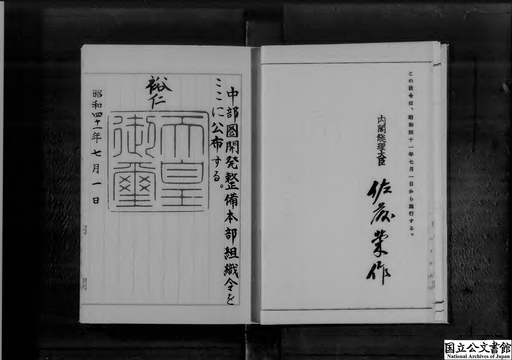 中部圏開発整備本部組織令を
ここに公布する。
裕仁
天皇
御璽
昭和四十一年七月一日
この政令は、昭和四十一年七月一日から施行する。
内閣総理大臣
佐藤榮作
国立公文書館
National Archives of Japan